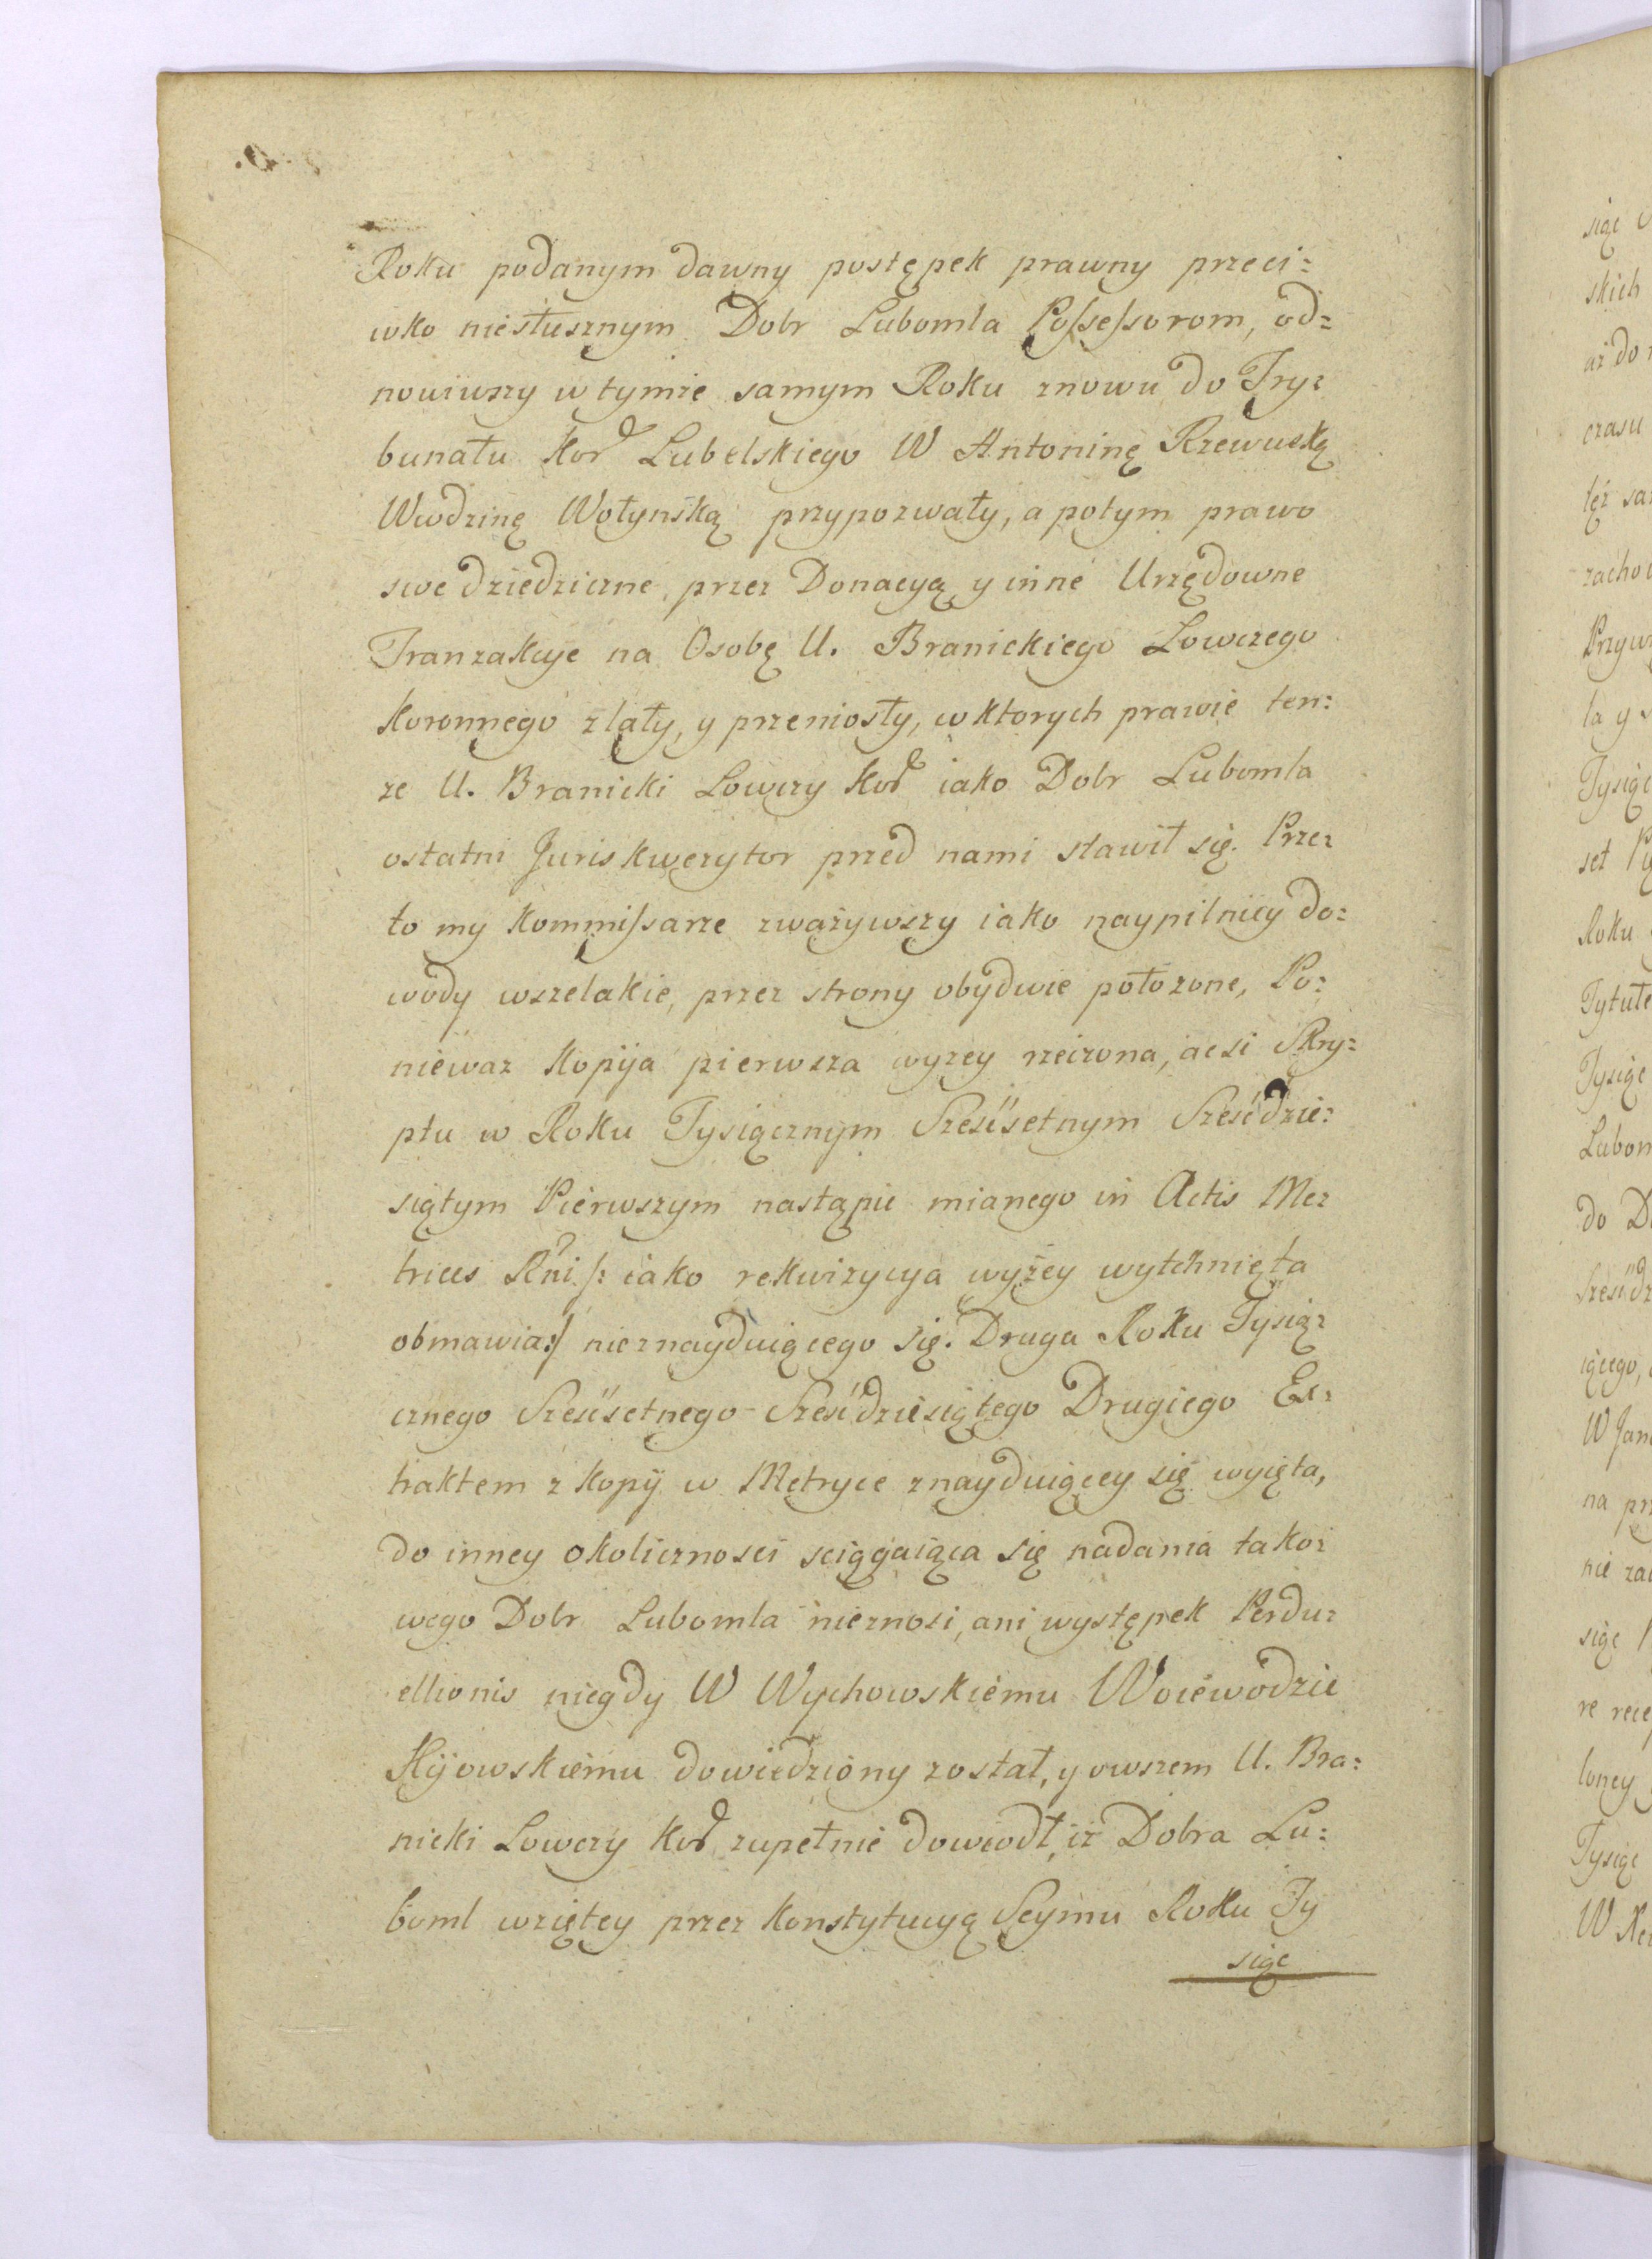 Roku podanym dawny postępek prawny przeci=
wko niesłusznym Dobr Lubomla Possessorom, od=
nowiwszy w tymze samym Roku znowu do Try=
bunału Kor Lubelskiego W Antoninę Rzewuską
Wwdzinę Wołynską przypozwały, a potym prawo
swe dziedziczne, przez Donacyą y inne Urzędowne
Tranzakcye na Osobę U. Branickiego Lowczego
Koronnego zlały, y przeniosły, w ktorych prawie ten=
ze U. Branicki Lowczy Kor iako Dobr Lubomla
ostatni Juris kwerytor przed nami stawił się. Prze=
to my Kommissarze zwazywszy iako naypilniey do=
wody wszelakie, przez strony obydwie połozone, Po=
niewaz Kopija pierwsza wyzey rzeczona, acsi Skry=
ptu w Roku Tysiącznym Szescsetnym Szescdzie=
siątym Pierwszym nastąpic mianego in Actis Me=
trices Rni /: iako rekwizycya wyżey wytchnięta
obmawia :/ nieznayduiącego się. Druga Roku Tysią=
cznego Szescsetnego Szescdziesiątego Drugiego Ex=
traktem z kopij w Metryce znayduiącey się wyięta,
do inney okolicznosci sciągaiąca się nadania tako=
wego Dobr Lubomla nieznosi, ani występek Perdu=
ellionis niegdy W Wychowskiemu Woiewodzie
Kijowskiemu dowiedziony został, y owszem U. Bra=
nicki Lowczy Kor zupełnie dowiodł, iz Dobra Lu=
boml wziętey przez Konstytucyą Seymu Roku Ty
siąc